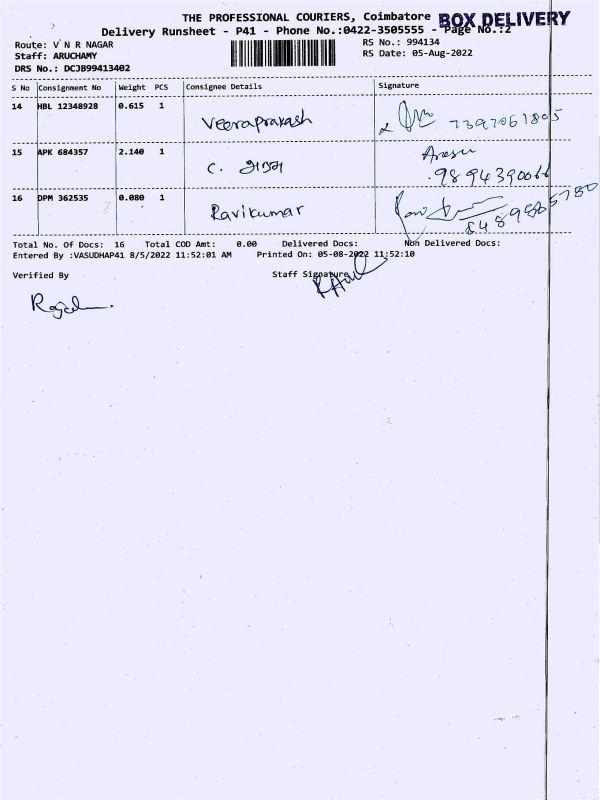 THE PROFESSIONAL COURIERS, Coimbatore BOX DELIVERY
Delivery Runsheet - P41 - Phone No.:0422-3505555 - Page No.:2
Route: V N R NAGAR
RS No.: 994134
Staff: ARUCHAMY
RS Date: 05-Aug-2022
DRS No.: DCJB99413402
S No Consignment No Weight PCS Consignee Details Signature
14 HBL 12348928 0.615 1 Veeraprakash 7397061805
15 APK 684357 2.140 1 C. Arasu
9894390066
16 DPM 362535 0.080 1 Ravikumar 8489805780
Total No. Of Docs: 16 Total COD Amt: 0.00 Delivered Docs: Non Delivered Docs:
Entered By :VASUDHAP41 8/5/2022 11:52:01 AM Printed On: 05-08-2022 11:52:10
Verified By Staff Signature